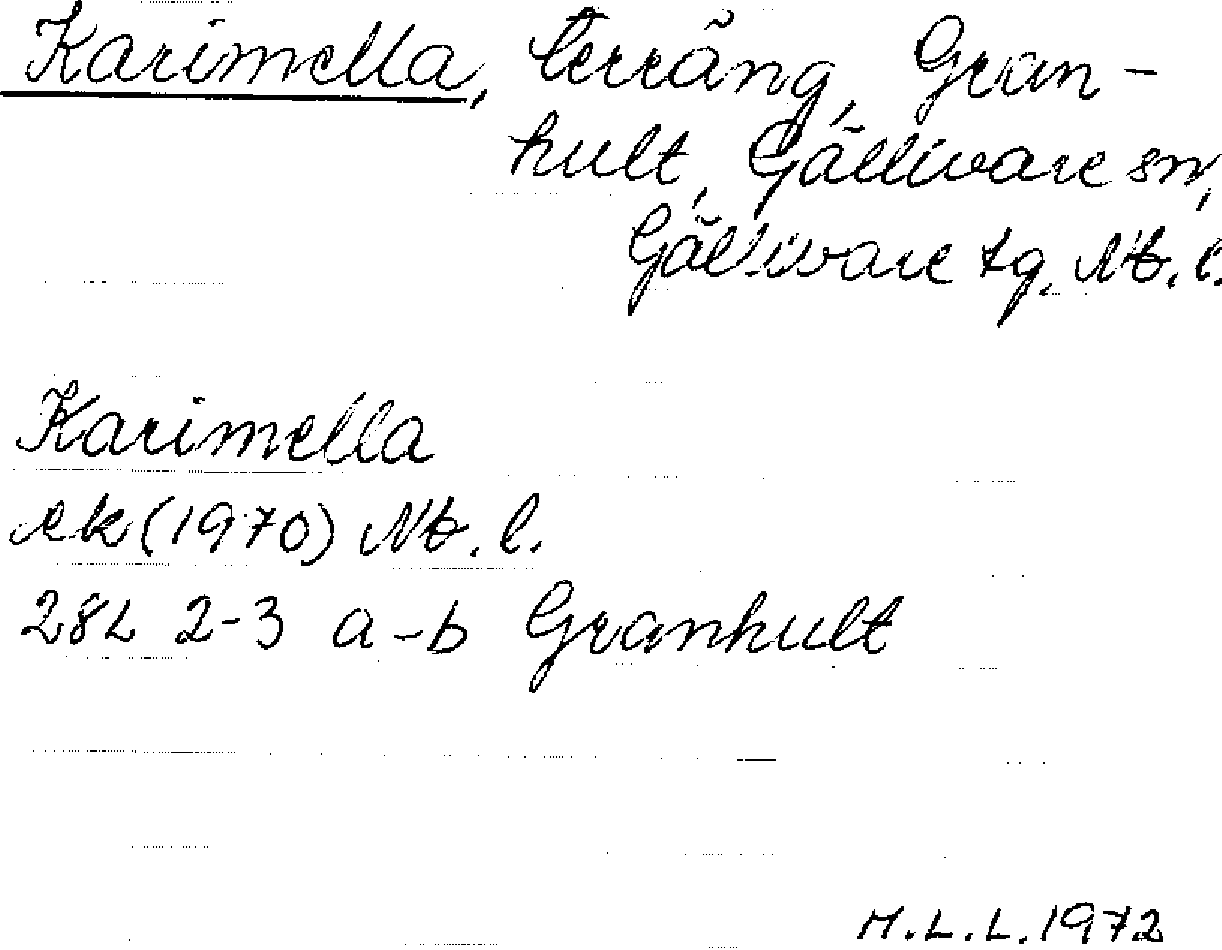 Karimella, terräng, Gran-
hult, Gällivare sn,
Gällivare tg. Nb. l.
Karimella
ek (1970) Nb. l.
28L 2-3 a-b Granhult
M.L.L. 1972